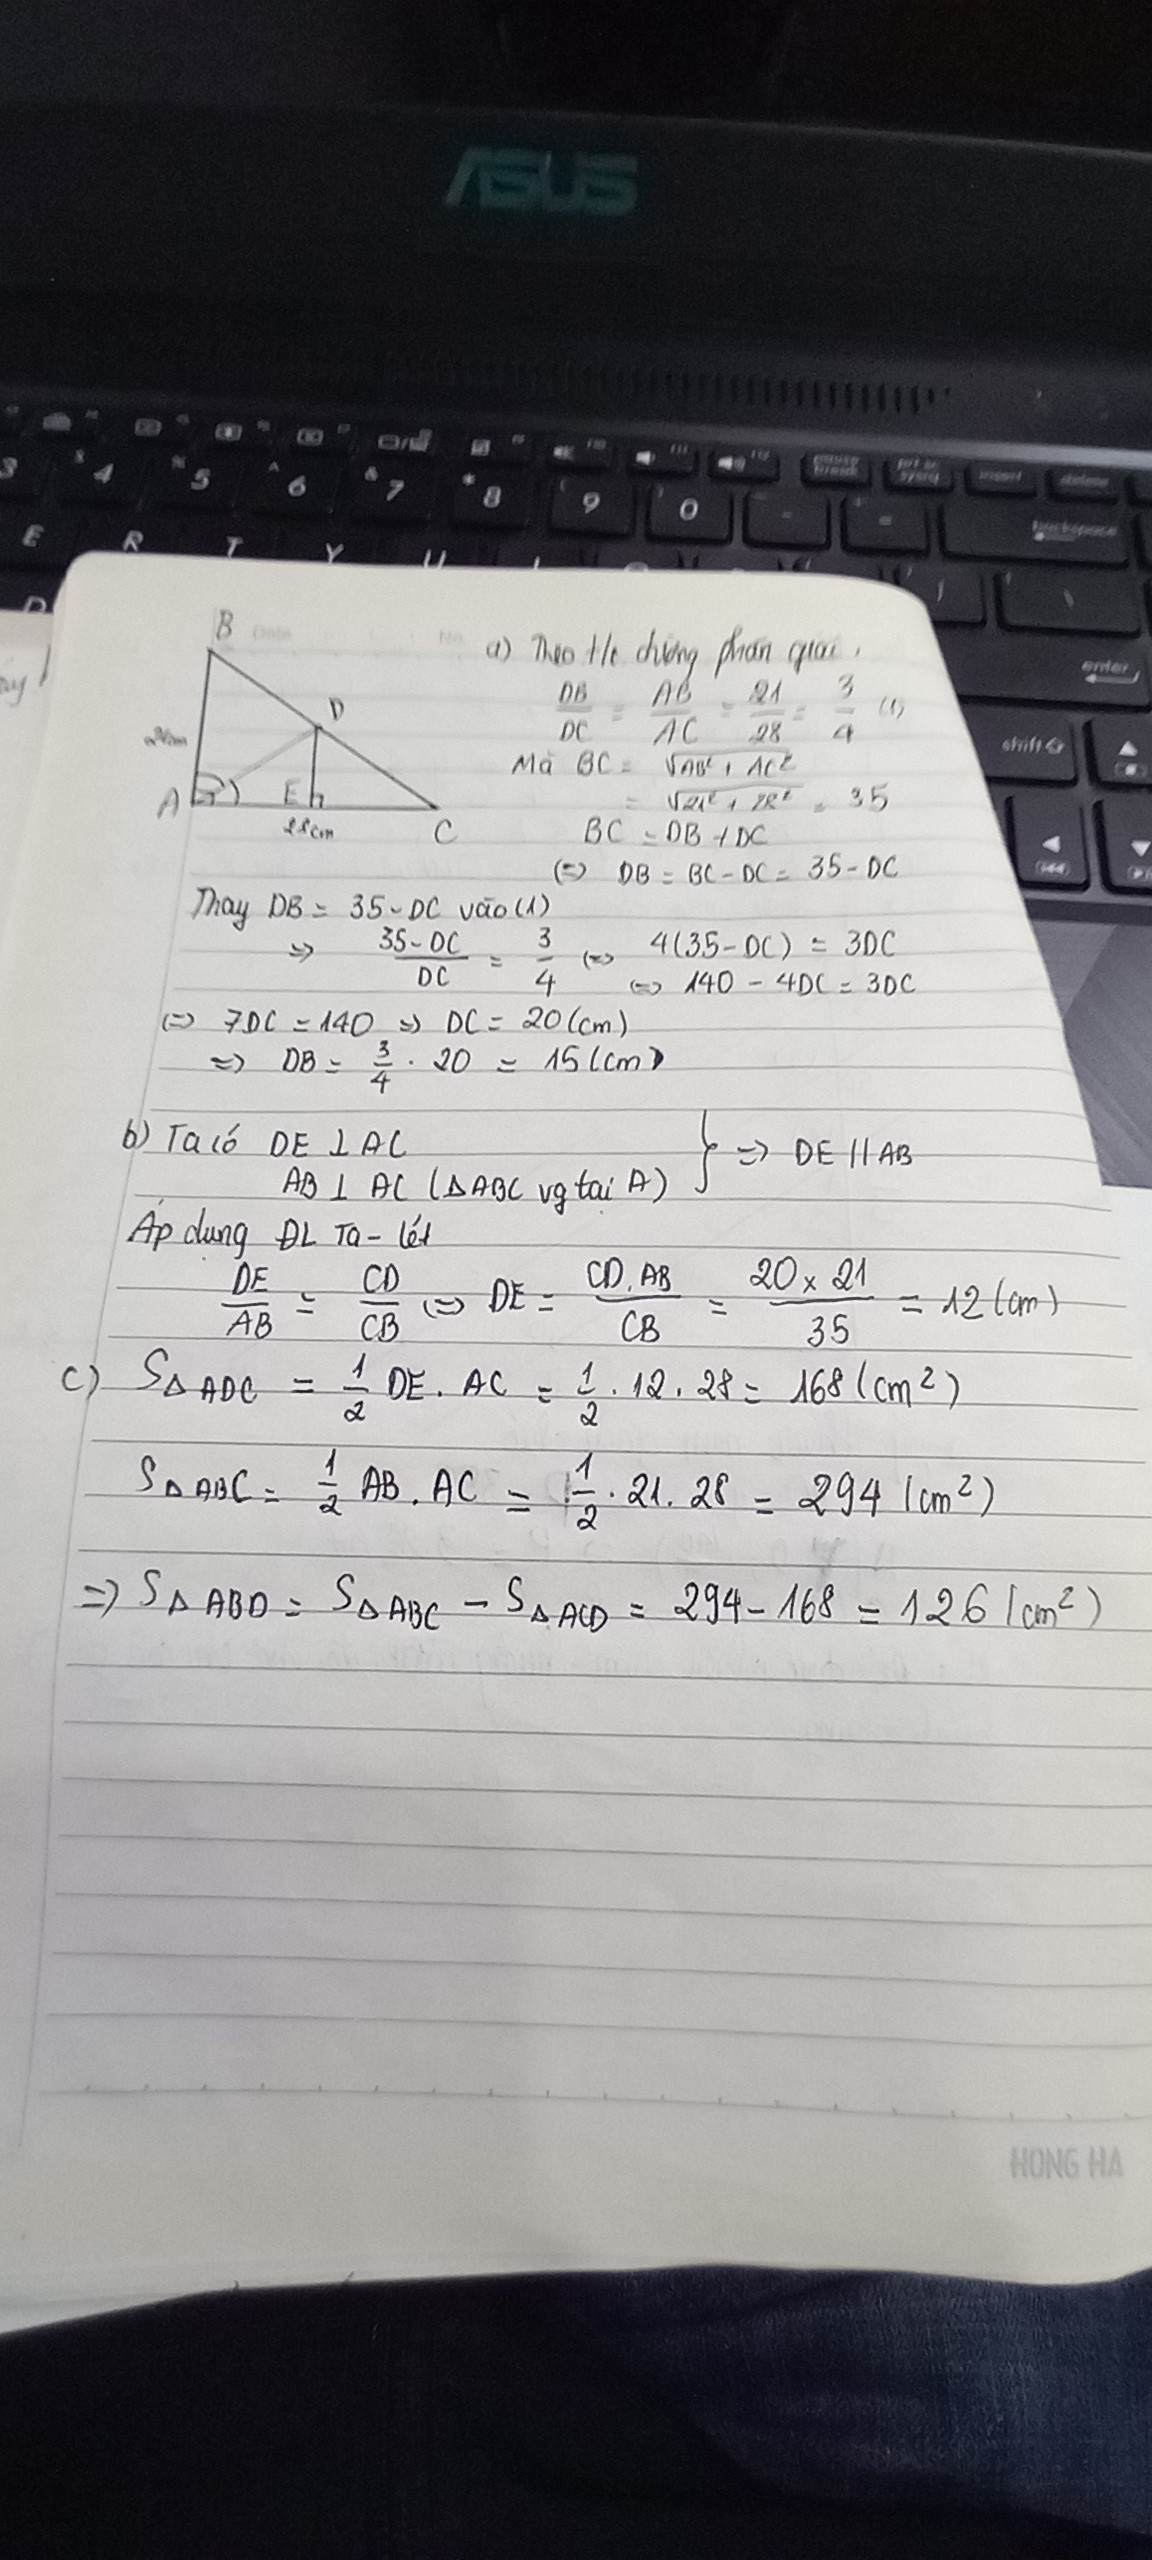 ASUS
3 4 5 6 7 8 9 0 - =
backspace
E R T Y U
enter
shift
B
D
21cm
A
E
28cm
C
a) Theo t/c đường phân giác,
DB/DC = AB/AC = 21/28 = 3/4 (1)
Mà BC = √AB² + AC²
= √21² + 28² = 35
BC = DB + DC
(=) DB = BC - DC = 35 - DC
Thay DB = 35 - DC vào (1)
=> 35 - DC/DC = 3/4 (=) 4(35 - DC) = 3DC
(=) 140 - 4DC = 3DC
(=) 7DC = 140 => DC = 20 (cm)
=> DB = 3/4 . 20 = 15 (cm)
b) Ta có DE ⊥ AC
AB ⊥ AC (ΔABC vg tại A) } => DE // AB
Áp dụng ĐL Ta-lét
DE/AB = CD/CB (=) DE = CD.AB/CB = 20 x 21/35 = 12 (cm)
c) SΔADC = 1/2 DE . AC = 1/2 . 12 . 28 = 168 (cm²)
SΔABC = 1/2 AB . AC = 1/2 . 21 . 28 = 294 (cm²)
=> SΔABD = SΔABC - SΔACD = 294 - 168 = 126 (cm²)
HONG HA